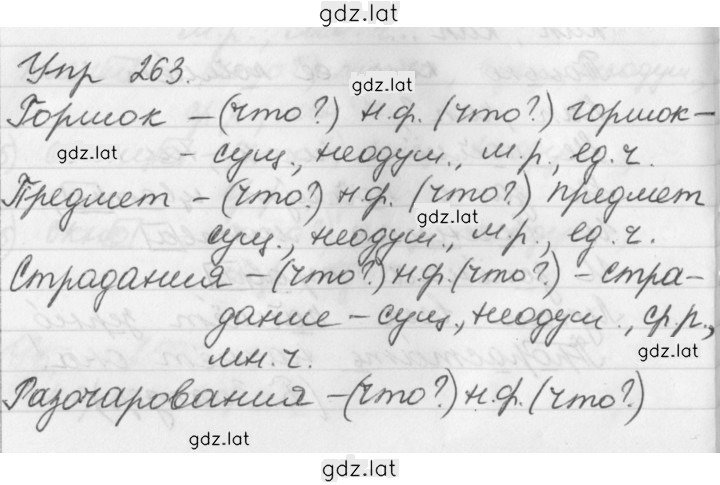 gdz.lat
Упр 263.
gdz.lat
Горшок – (что?) н.ф. (что?) горшок –
gdz.lat
– сущ., неодуш., м.р., ед.ч.
Предмет – (что?) н.ф. (что?) предмет
gdz.lat
сущ., неодуш., м.р., ед.ч.
Страдания – (что?) н.ф. (что?) – стра-
дание – сущ., неодуш., ср.р.,
gdz.lat
мн.ч.
Разочарования – (что?) н.ф. (что?)
gdz.lat
gdz.lat